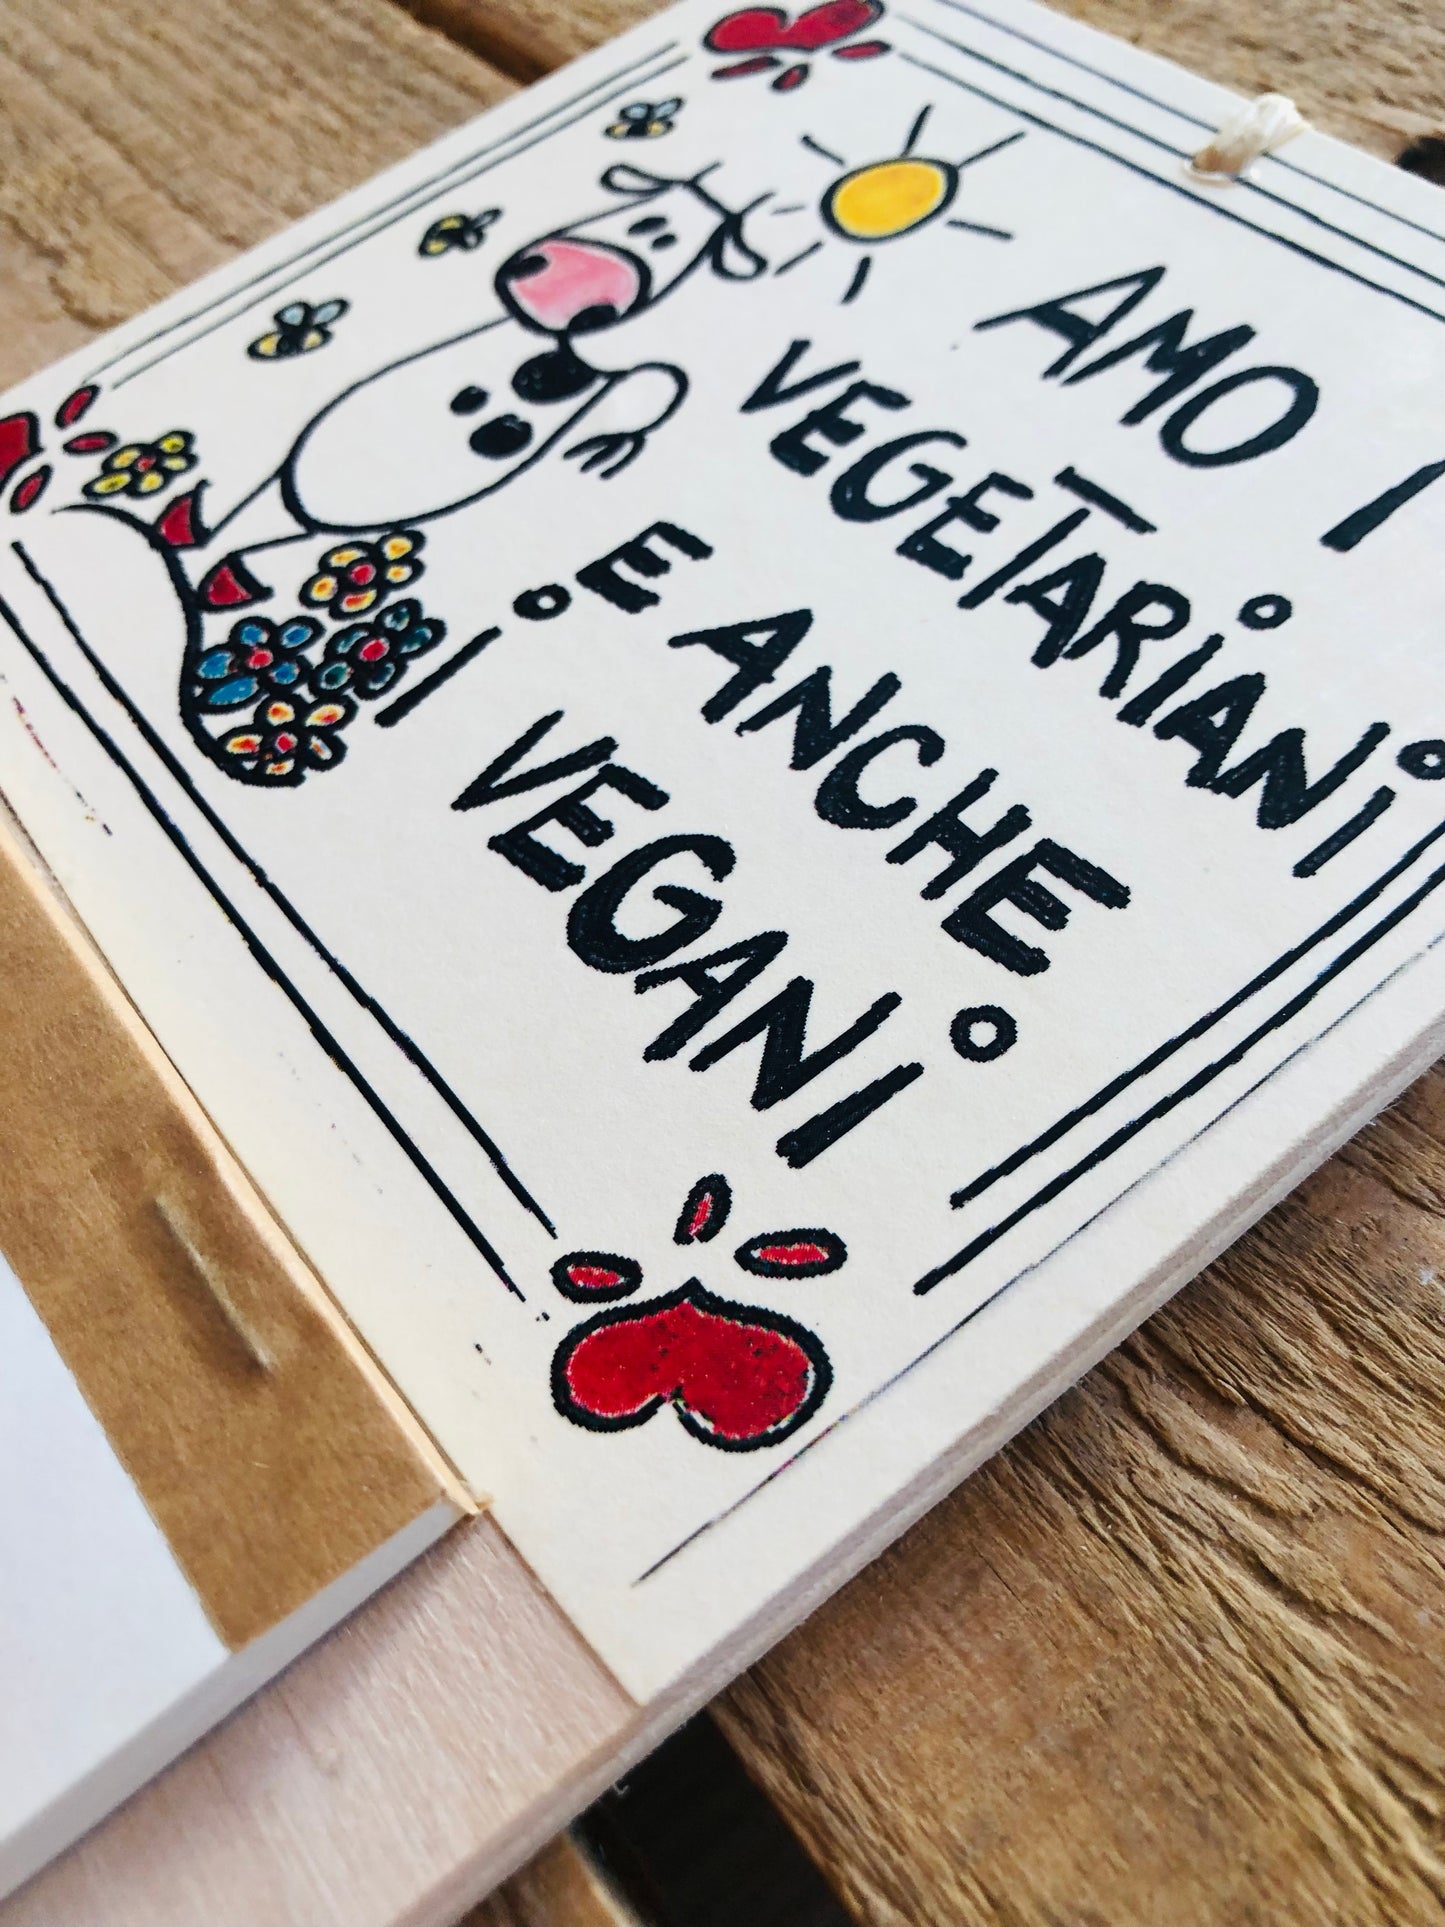 AMO I
VEGETARIANI
E ANCHE
I VEGANI